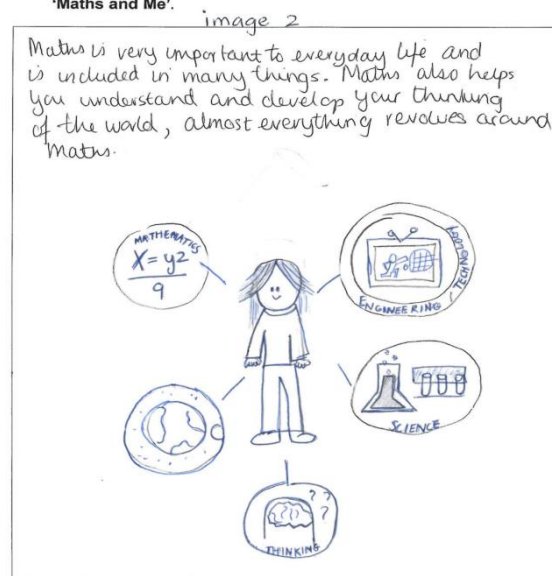 'Maths and Me'.
image 2
Maths is very important to everyday life and
is included in many things. Maths also helps
you understand and develop your thinking
of the world, almost everything revolves around
Maths.
MATHEMATICS
X = y2
9
ENGINEERING / TECHNOLOGY
SCIENCE
? ?
?
THINKING